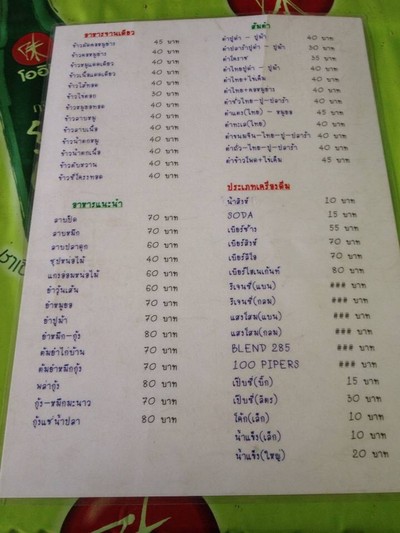 อาหารจานเดียว
ข้าวผัดคอหมูย่าง 45 บาท
ข้าวคอหมูย่าง 40 บาท
ข้าวหมูแดดเดียว 40 บาท
ข้าวเนื้อแดดเดียว 40 บาท
ข้าวไส้ทอด 40 บาท
ข้าวไข่ดอก 30 บาท
ข้าวหมูยอทอด 40 บาท
ข้าวลาบหมู 40 บาท
ข้าวลาบเนื้อ 40 บาท
ข้าวน้ำตกหมู 40 บาท
ข้าวน้ำตกเนื้อ 40 บาท
ข้าวตับหวาน 40 บาท
ข้าวซี่โครงทอด 40 บาท
ส้มตำ
ตำปูม้า - ปูม้า 40 บาท
ตำปลาร้าปูม้า - ปูม้า 30 บาท
ตำโคราช 35 บาท
ตำไทยปูม้า - ปูม้า 40 บาท
ตำไทย+ไข่เค็ม 40 บาท
ตำไทย+คอหมูย่าง 40 บาท
ตำซั่วไทย-ปู-ปลาร้า 40 บาท
ตำแตง(ไทย) - หมูยอ 45 บาท
ตำทะเล(ไทย) 40 บาท
ตำขนมจีน-ไทย-ปู-ปลาร้า 40 บาท
ตำถั่ว-ไทย-ปู-ปลาร้า 40 บาท
ตำข้าวโพด+ไข่เค็ม 45 บาท
อาหารแนะนำ
ลาบเป็ด 70 บาท
ลาบหมึก 70 บาท
ลาบปลาดุก 60 บาท
ซุปหน่อไม้ 40 บาท
แกงอ่อมหน่อไม้ 60 บาท
ยำวุ้นเส้น 60 บาท
ยำหมูยอ 70 บาท
ยำปูม้า 70 บาท
ยำหมึก-กุ้ง 80 บาท
ต้มยำไก่บ้าน 70 บาท
ต้มยำหมึกกุ้ง 70 บาท
พล่ากุ้ง 80 บาท
กุ้ง-หมึกมะนาว 70 บาท
กุ้งแช่น้ำปลา 80 บาท
ประเภทเครื่องดื่ม
น้ำสิงห์ 10 บาท
SODA 15 บาท
เบียร์ช้าง 55 บาท
เบียร์สิงห์ 70 บาท
เบียร์ลีโอ 70 บาท
เบียร์ไฮเนเก้นท์ 80 บาท
รีเจนซี่(แบน) ### บาท
รีเจนซี่(กลม) ### บาท
แสงโสม(แบน) ### บาท
แสงโสม(กลม) ### บาท
BLEND 285 ### บาท
100 PIPERS ### บาท
เป็บซี่(บิ๊ก) 15 บาท
เป็บซี่(ลิตร) 30 บาท
โค้ก(เล็ก) 10 บาท
น้ำแข็ง(เล็ก) 10 บาท
น้ำแข็ง(ใหญ่) 20 บาท